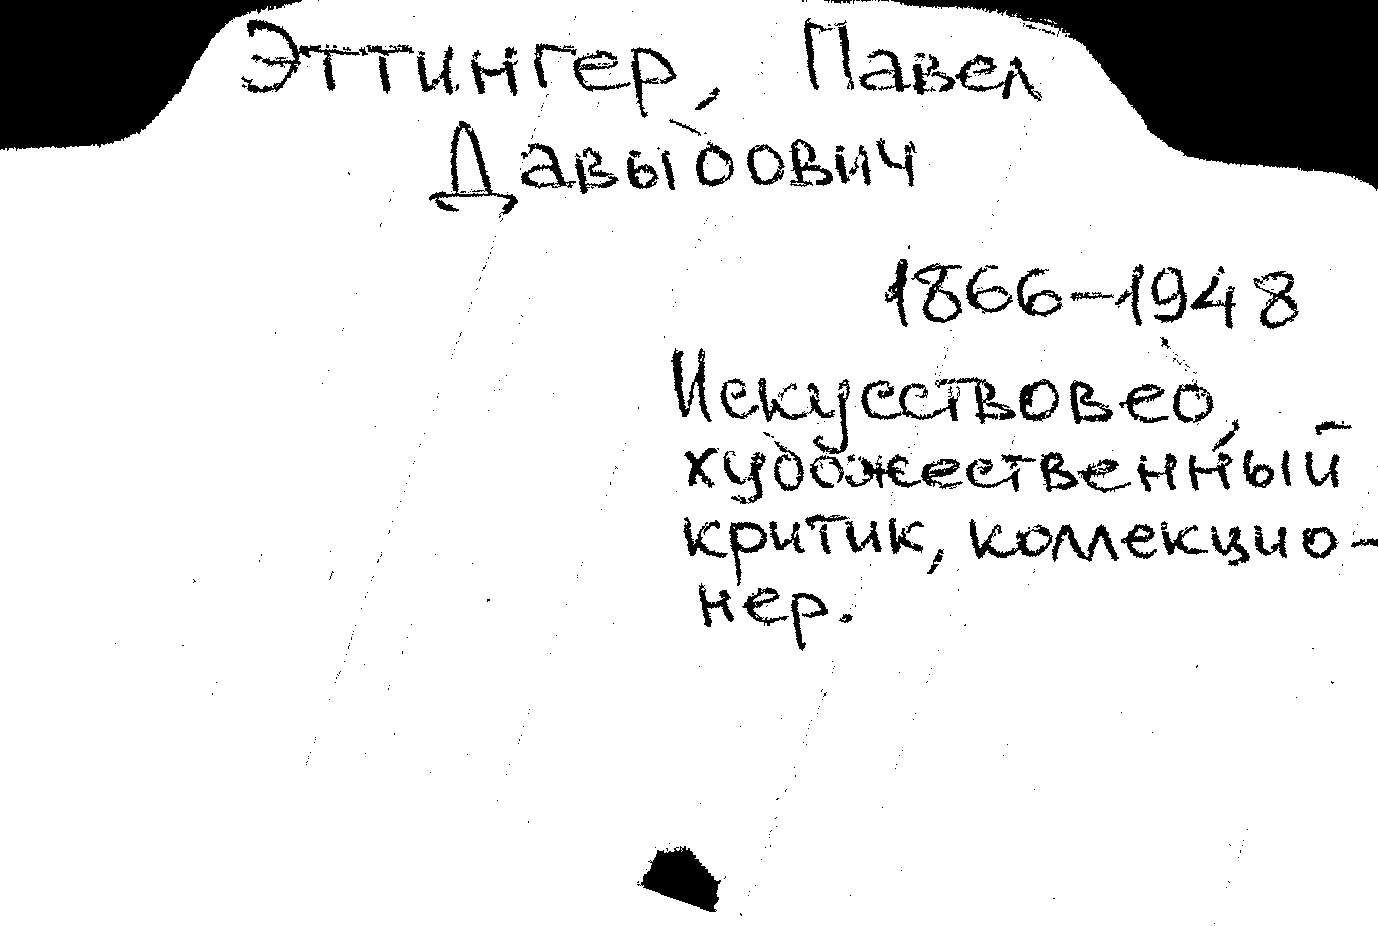 Эттингер, Павел
Давыдович
1866-1948
Искусствовед,
художественный
критик, коллекцио-
нер.